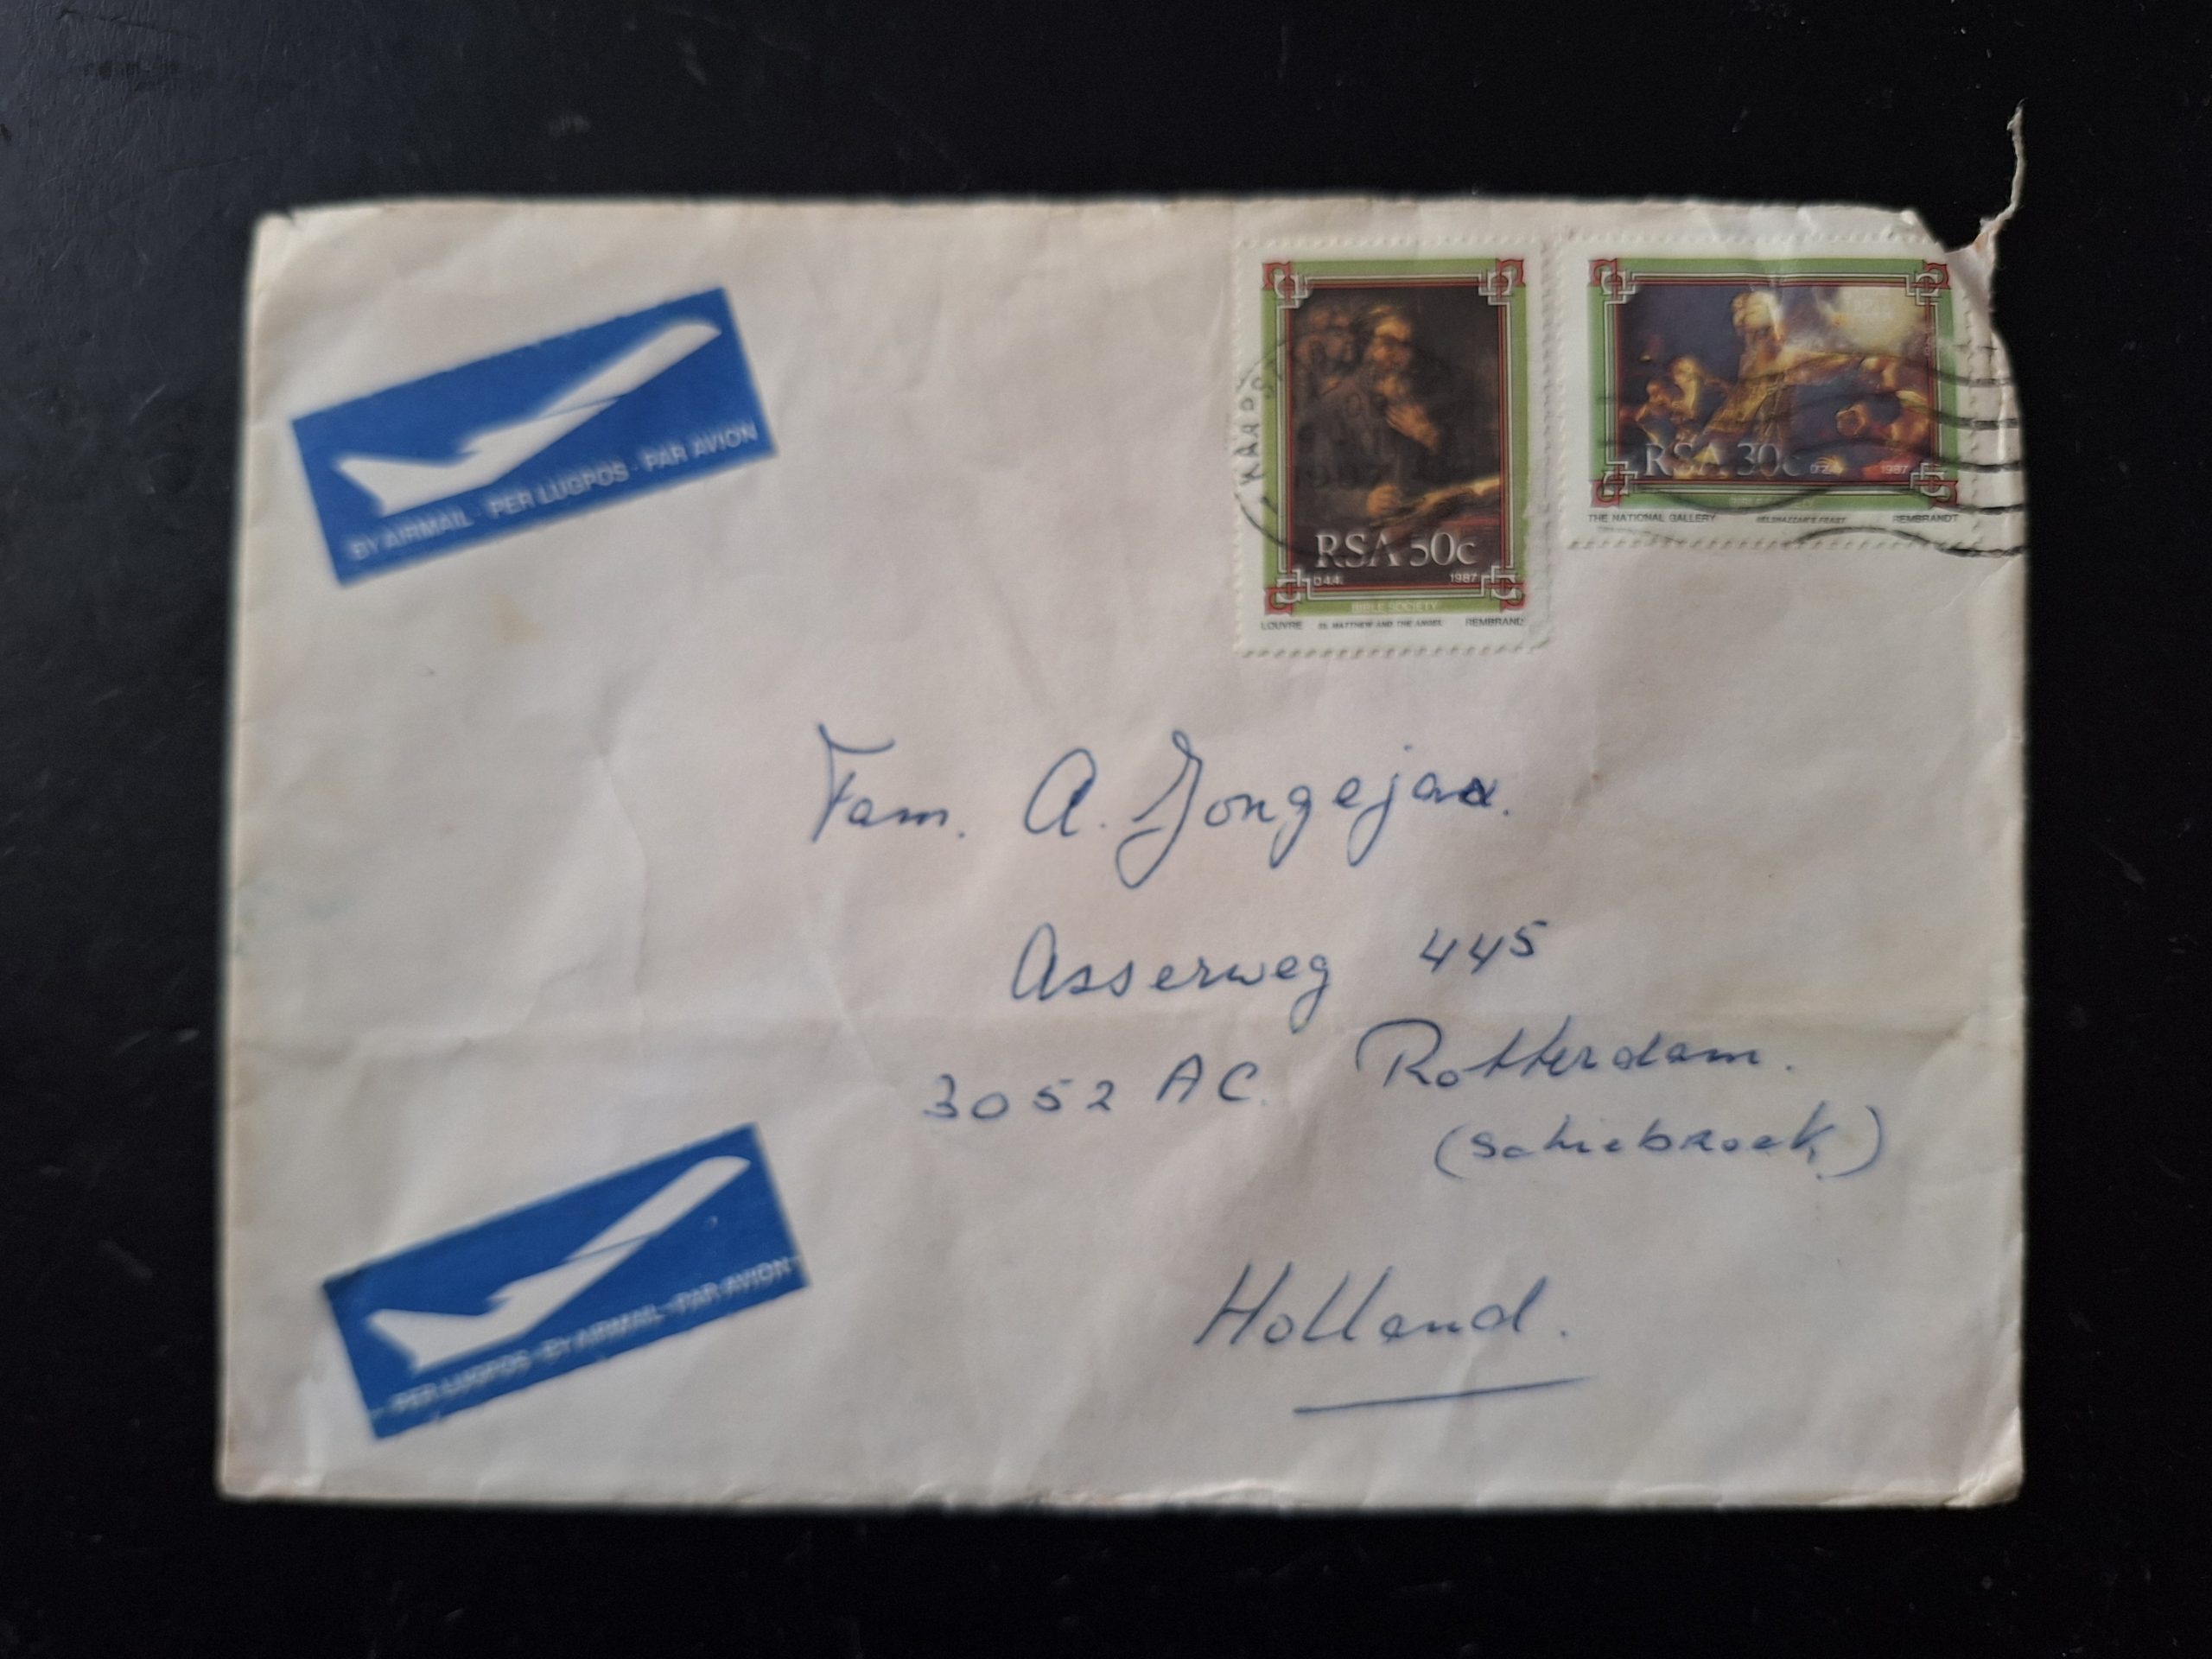 BY AIRMAIL · PER LUGPOS · PAR AVION
RSA 50c
0.44.
1987
BIBLE SOCIETY
LOUVRE ST. MATTHEW AND THE ANGEL REMBRANDT
RSA 30c
1987
THE NATIONAL GALLERY BELSHAZZAR'S FEAST REMBRANDT
Fam. A. Jongejan.
Asserweg 445
3052 AC. Rotterdam.
(Schiebroek)
Holland.
PER LUGPOS · BY AIRMAIL · PAR AVION